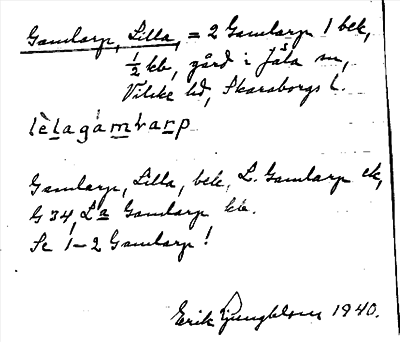 Gamlarp, Lilla, = 2 Gamlarp 1 bek,
1/2 kb, gård i Jäla sn,
Vilske hd, Skaraborgs l.
lèlagàmlarp
Gamlarp, Lilla, bek, L. Gamlarp ek,
G 34, La Gamlarp kb.
Se 1-2 Gamlarp!
Erik Ljungblom 1940.